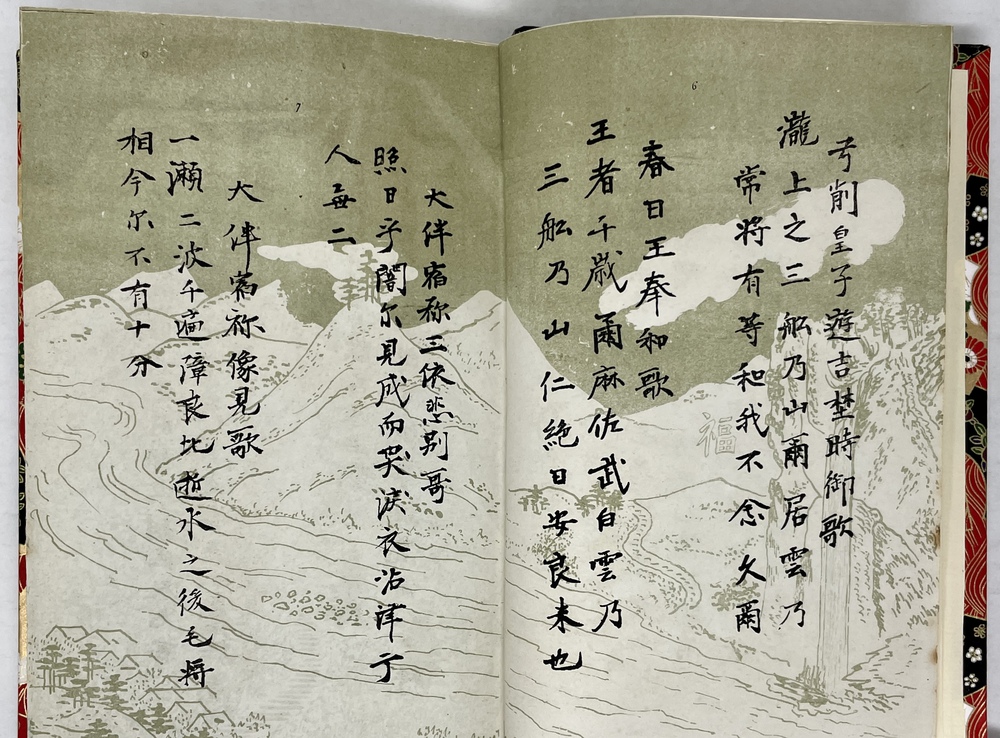 6
弓削皇子遊吉埜時御歌
瀧上之三舩乃山爾居雲乃
常将有等和我不念久爾
春日王奉和歌
王者千歳爾麻佐武白雲乃
三舩乃山仁絶日安良米也
福
7
大伴宿祢三依悲別哥
照日乎闇尓見成而哭涙衣沾津干
人無二
大伴宿祢像見歌
一瀬二波千遍障良比逝水之後毛将
相今尓不有十分